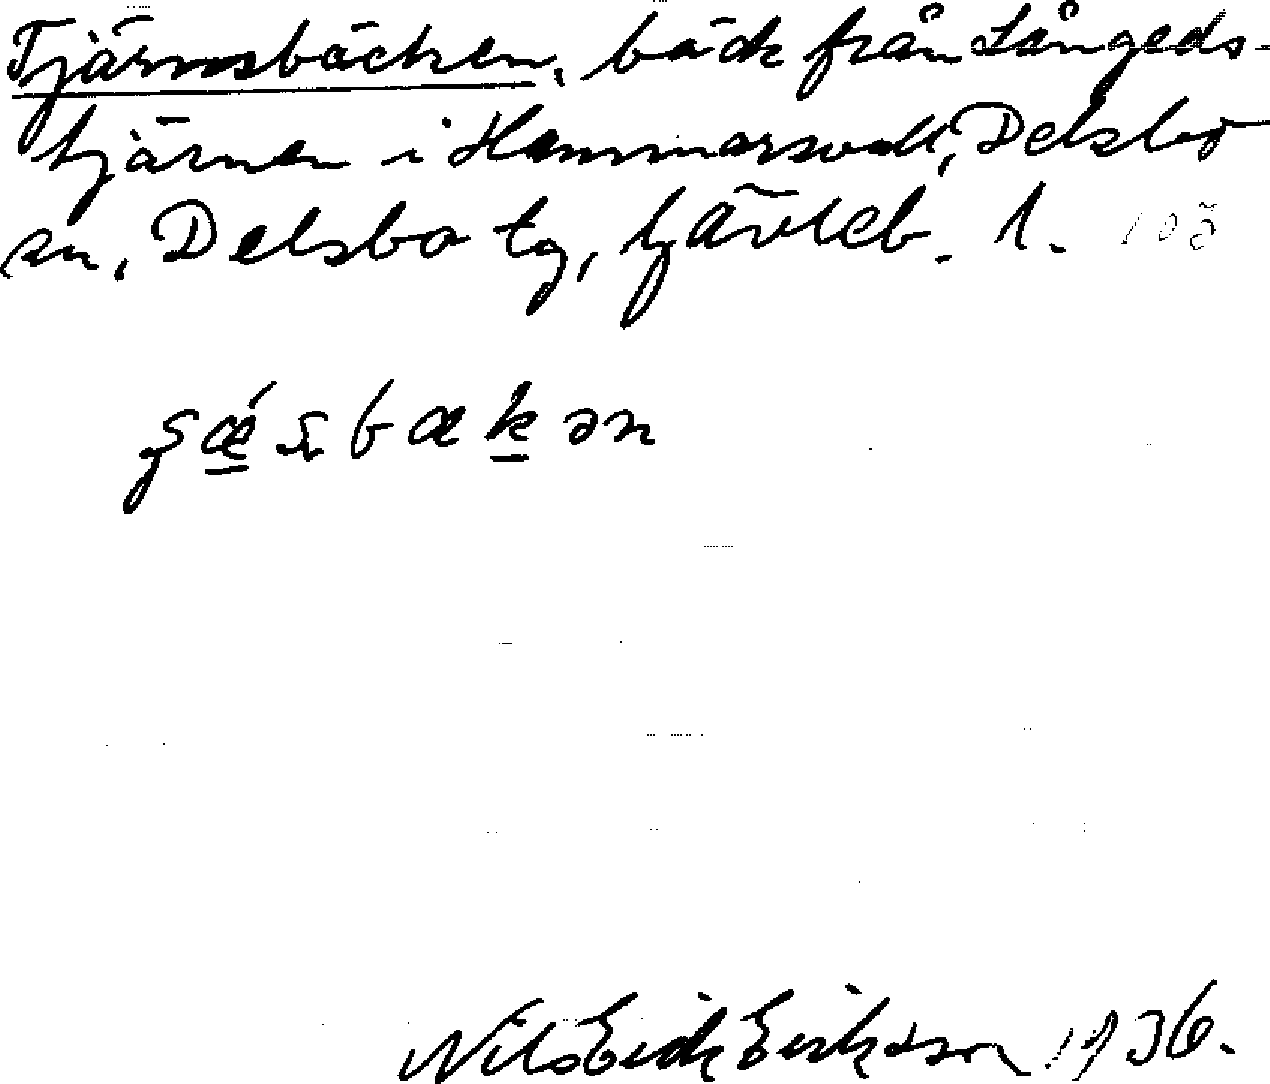 Tjärnsbäcken, bäck från Långeds-
tjärnen i Hammarsvall, Delsbo
sn, Delsbo tg, Gävleb. l. 105
bækən
Nils Erik Eriksson 1936.